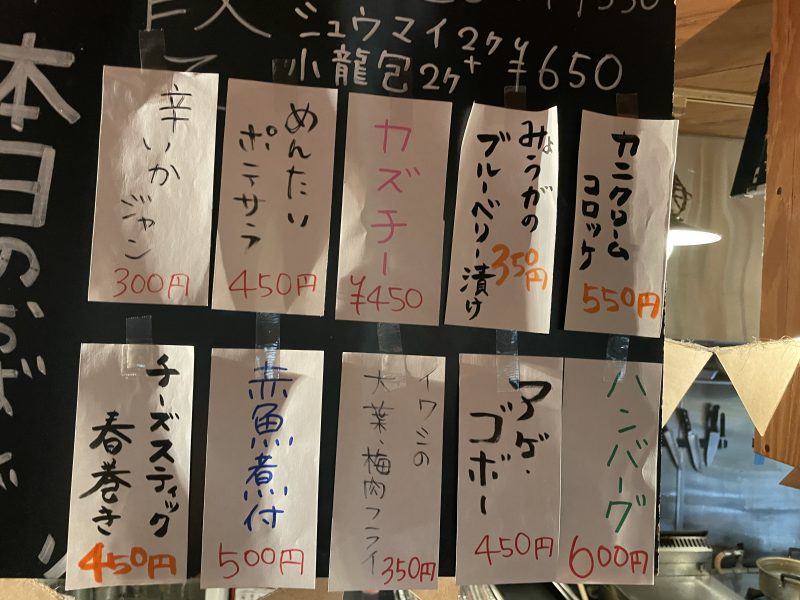 シュウマイ2ケ
小龍包2ケ+ ¥650
本日のおばん
辛いか
ジャン
300円
めんたい
ポテサラ
450円
カズチー
¥450
みょうがの
ブルーベリー漬け
350円
カニクリーム
コロッケ
550円
チーズスティック
春巻き
450円
赤魚煮付
500円
イワシの
大葉・梅肉フライ
350円
アゲ・
ゴボー
450円
ハンバーグ
600円